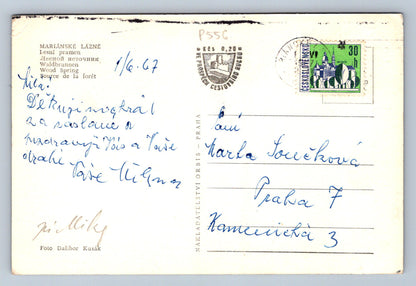 MARIÁNSKÉ LÁZNĚ
Lesní pramen
Лесной источник
Waldbrunnen
Wood Spring
Source de la forêt
1/6. 67
P556
Kčs 0,20
VE PROSPĚCH CESTOVNÍHO RUCHU
ČESKOSLOVENSKO
30 h
Milá!
Děkuji mnohokrát
za zaslané a
pozdravuji Vás a Vaše
drahé
Vaše Milena
Foto Dalibor Kusák
NAKLADATELSTVÍ ORBIS - PRAHA
Paní
Marta Součková
Praha 7
Kamenická 3